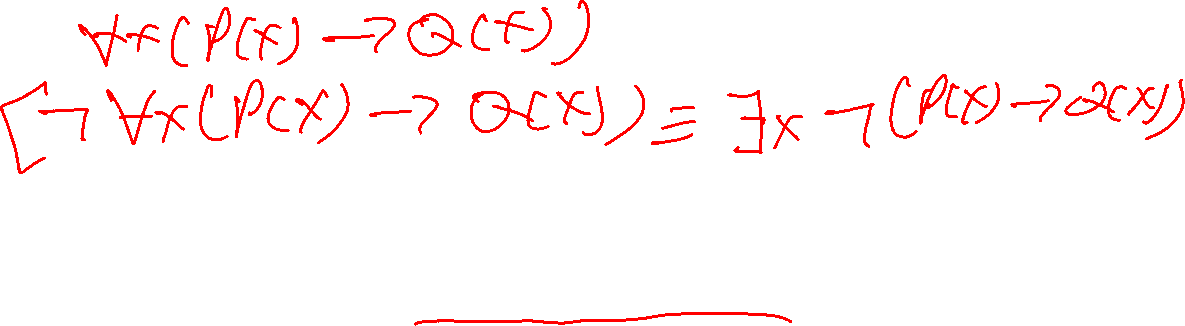 ∀x(P(x) → Q(x))
[¬ ∀x(P(x) → Q(x)) ≡ ∃x ¬(P(x) → Q(x))